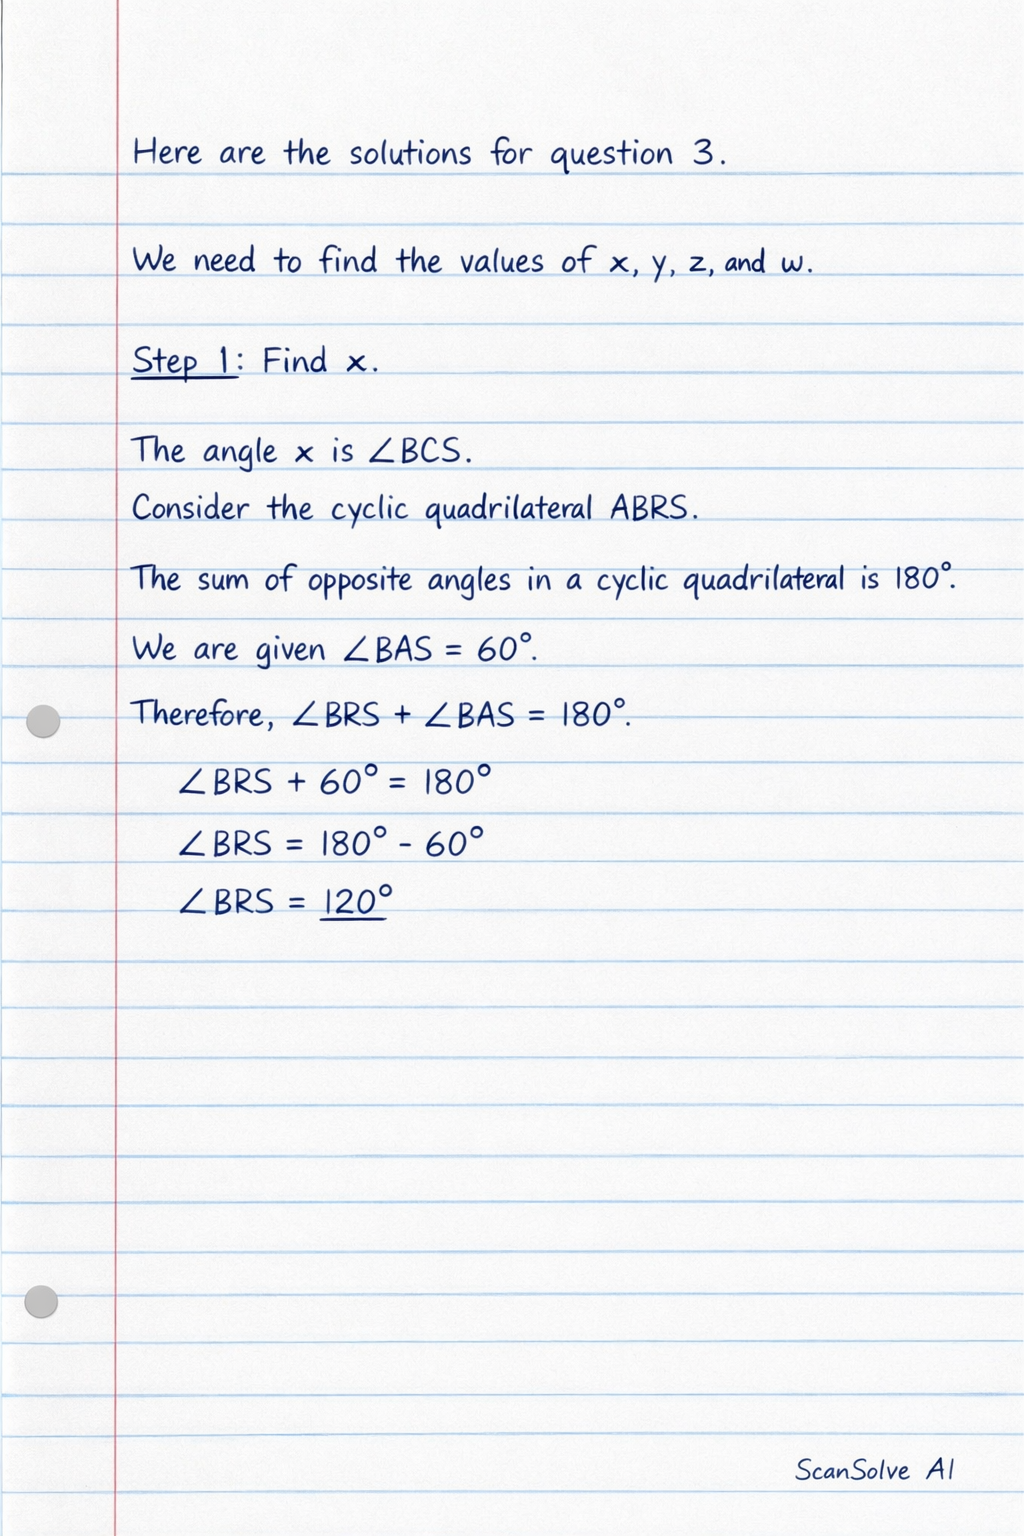 Here are the solutions for question 3.
We need to find the values of x, y, z, and w.
Step 1: Find x.
The angle x is ∠BCS.
Consider the cyclic quadrilateral ABRS.
The sum of opposite angles in a cyclic quadrilateral is 180°.
We are given ∠BAS = 60°.
Therefore, ∠BRS + ∠BAS = 180°.
∠BRS + 60° = 180°
∠BRS = 180° - 60°
∠BRS = 120°
ScanSolve AI